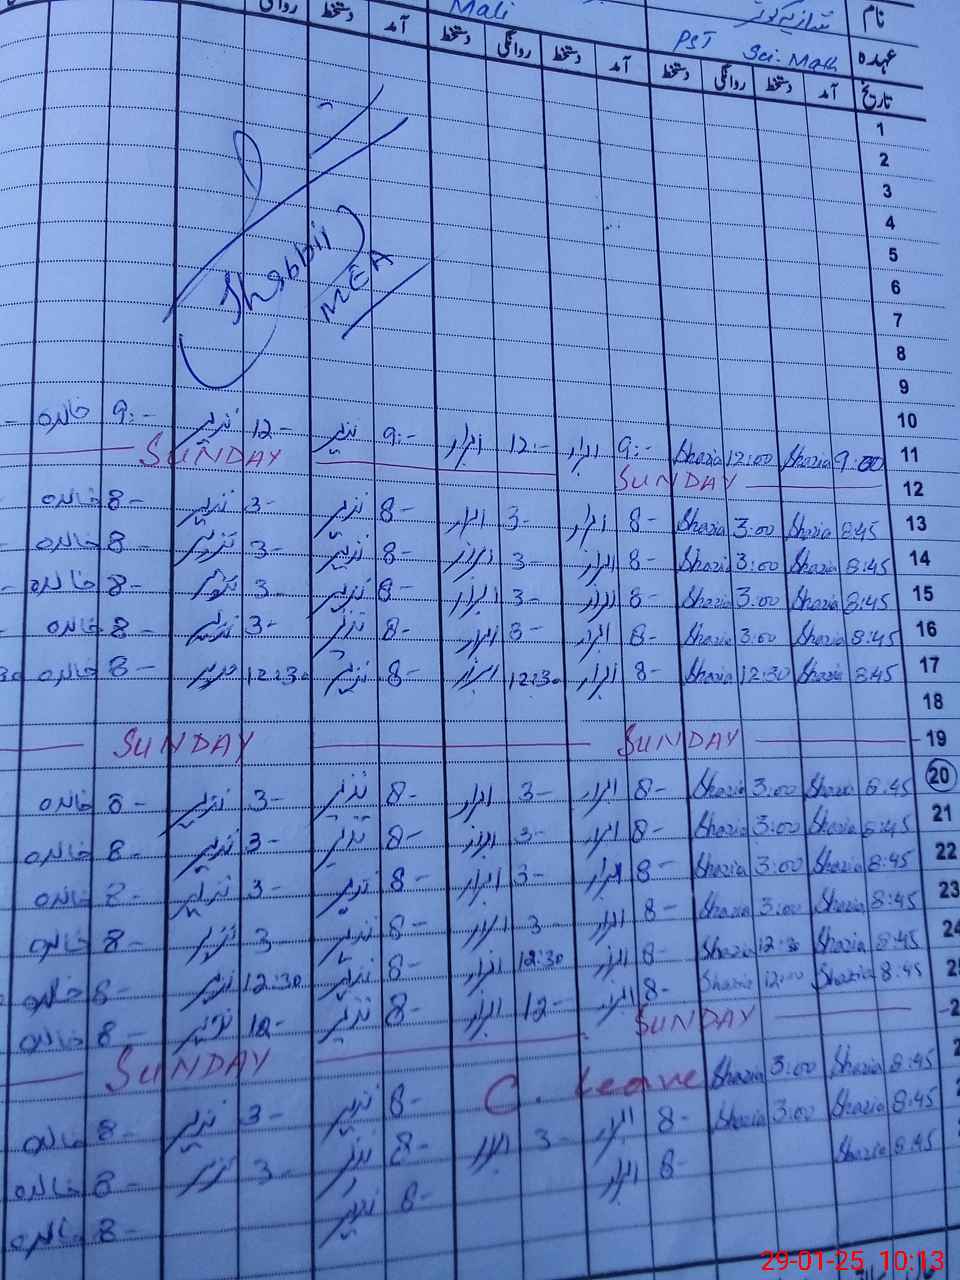 نام شازیہ کوثر
عہدہ PST Sci-Math Mali
تاریخ آمد دستخط روانگی دستخط آمد دستخط روانگی دستخط آمد دستخط
1
2
3
4
5
6
7
8
9
10
Shabbir
MEA
11 9:00 Shazia 12:00 Shazia 9:- ابرار 12:- ابرار 9:- نذیر 12- نذیر 9:- خالدہ
12 SUNDAY SUNDAY
13 8:45 Shazia 3:00 Shazia 8- ابرار 3- ابرار 8- نذیر 3- نذیر 8- خالدہ
14 8:45 Shazia 3:00 Shazia 8- ابرار 3- ابرار 8- نذیر 3- نذیر 8- خالدہ
15 8:45 Shazia 3:00 Shazia 8- ابرار 3- ابرار 8- نذیر 3- نذیر 8- خالدہ
16 8:45 Shazia 3:00 Shazia 8- ابرار 3- ابرار 8- نذیر 3- نذیر 8- خالدہ
17 8:45 Shazia 12:30 Shazia 8- ابرار 12:30 ابرار 8- نذیر 12:30 نذیر 8- خالدہ
18
19 SUNDAY SUNDAY
20 8:45 Shazia 3:00 Shazia 8- ابرار 3- ابرار 8- نذیر 3- نذیر 8- خالدہ
21 8:45 Shazia 3:00 Shazia 8- ابرار 3- ابرار 8- نذیر 3- نذیر 8- خالدہ
22 8:45 Shazia 3:00 Shazia 8- ابرار 3- ابرار 8- نذیر 3- نذیر 8- خالدہ
23 8:45 Shazia 3:00 Shazia 8- ابرار 3- ابرار 8- نذیر 3- نذیر 8- خالدہ
24 8:45 Shazia 12:30 Shazia 8- ابرار 12:30 ابرار 8- نذیر 12:30 نذیر 8- خالدہ
8:45 Shazia 12:00 Shazia 8- ابرار 12- ابرار 8- نذیر 12- نذیر 8- خالدہ
SUNDAY SUNDAY
8:45 Shazia 3:00 Shazia C. Leave 8- نذیر 3- نذیر 8- خالدہ
8:45 Shazia 3:00 Shazia 8- ابرار 3- ابرار 8- نذیر 3- نذیر 8- خالدہ
8:45 Shazia 8- ابرار 8- نذیر 8- خالدہ
29-01-25 10:13